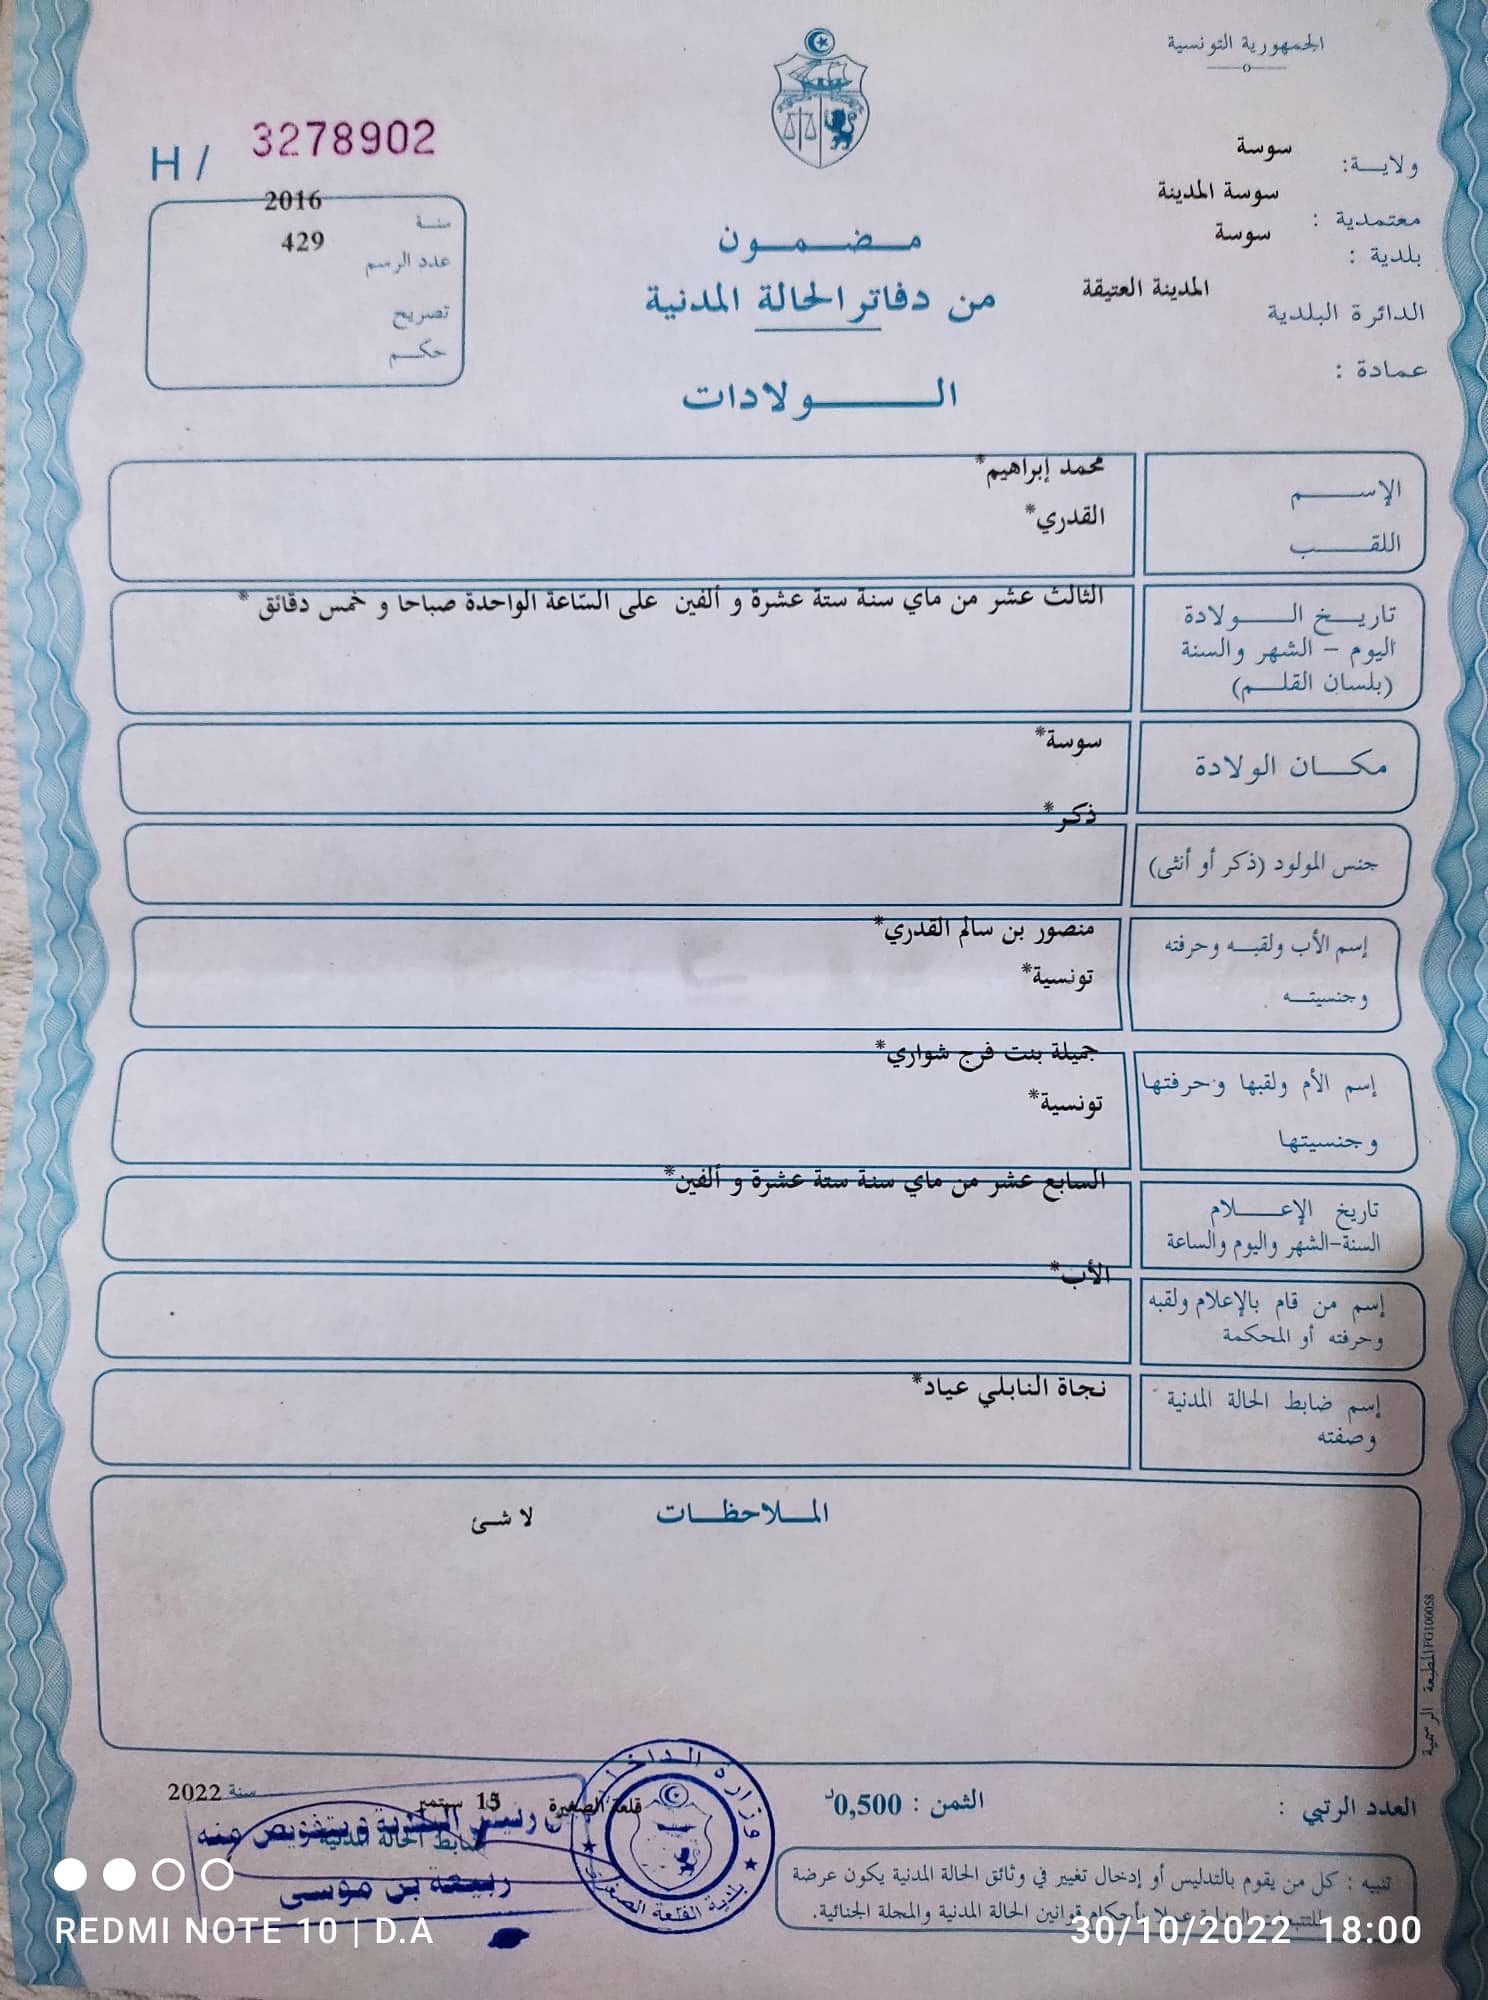 الجمهورية التونسية
ولاية: سوسة
معتمدية : سوسة المدينة
بلدية : سوسة
الدائرة البلدية المدينة العتيقة
عمادة :
H / 3278902
سنة 2016
عدد الرسم 429
تصريح
حكم
مضمون
من دفاتر الحالة المدنية
الولادات
الإسم محمد إبراهيم*
اللقب القدري*
تاريخ الولادة الثالث عشر من ماي سنة ستة عشرة و ألفين على السّاعة الواحدة صباحا و خمس دقائق *
اليوم – الشهر والسنة
(بلسان القلم)
مكان الولادة سوسة*
جنس المولود (ذكر أو أنثى) ذكر*
إسم الأب ولقبه وحرفته منصور بن سالم القدري*
وجنسيته تونسية*
إسم الأم ولقبها وحرفتها جميلة بنت فرج شواري*
وجنسيتها تونسية*
تاريخ الإعلام السابع عشر من ماي سنة ستة عشرة و ألفين*
السنة-الشهر واليوم والساعة
إسم من قام بالإعلام ولقبه الأب*
وحرفته أو المحكمة
إسم ضابط الحالة المدنية نجاة النابلي عياد*
وصفته
الملاحظات لا شئ
المطبعة الرسمية FG100058
العدد الرتبي :
الثمن : 0,500د
قلعة الصغيرة 15 سبتمبر سنة 2022
ضابط الحالة المدنية
رئيس البلدية وبتفويض منه
ربيعة بن موسى
وزارة الداخلية
بلدية القلعة الصغرى
تنبيه : كل من يقوم بالتدليس أو إدخال تغيير في وثائق الحالة المدنية يكون عرضة
للتتبعات العدلية عملا بأحكام قوانين الحالة المدنية والمجلة الجنائية.
REDMI NOTE 10 | D.A
30/10/2022 18:00